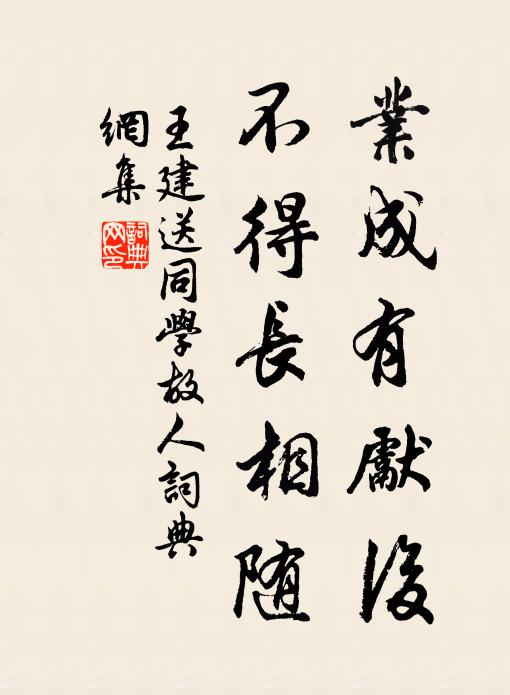 業成有獻後
不得長相随
王建送同學故人詞典
網集
詞典网印